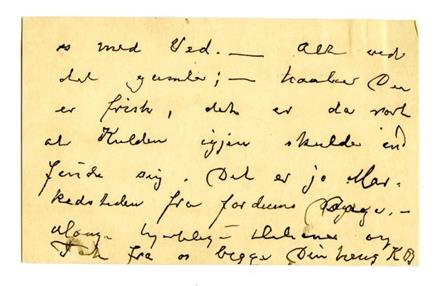 os med Ved. — Alt ved
det gamle; — haaber Du
er frisk, det er da rart
at Kulden igjen skulde ind
finde sig. Det er jo Mar-
kedstiden fra fordums Dage. —
Mange hjertelige Hilsener og
Tak fra os begge Din heng. KB